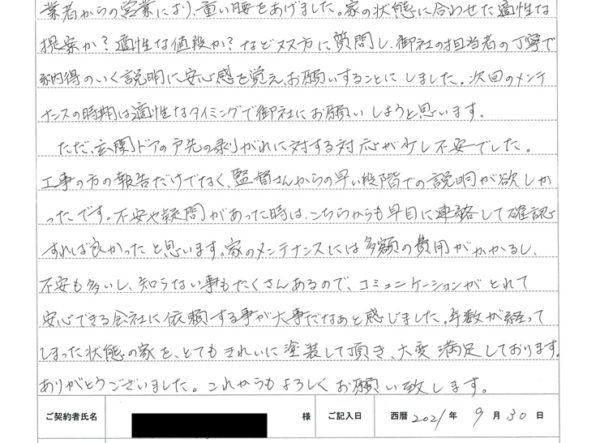 業者からの営業により、重い腰をあげました。家の状態に合わせた適性な
提案か?適性な値段か?など双方に質問し、御社の担当者の丁寧で
納得のいく説明に安心感を覚え、お願いすることにしました。次回のメンテ
ナンスの時期は適性なタイミングで御社にお願いしようと思います。
ただ、玄関ドアの戸先の剥がれに対する対応が少し不安でした。
工事の方の報告だけでなく、監督さんからの早い段階での説明が欲しか
ったです。不安や疑問があった時は、こちらからも早目に連絡して確認
すれば良かったと思います。家のメンテナンスには多額の費用がかかるし、
不安も多いし、知らない事もたくさんあるので、コミュニケーションがとれて
安心できる会社に依頼する事が大事だなあと感じました。年数が経って
しまった状態の家を、とてもきれいに塗装して頂き、大変満足しております。
ありがとうございました。これからもよろしくお願い致します。
ご契約者氏名 様 ご記入日 西暦 2021年 9月 30日